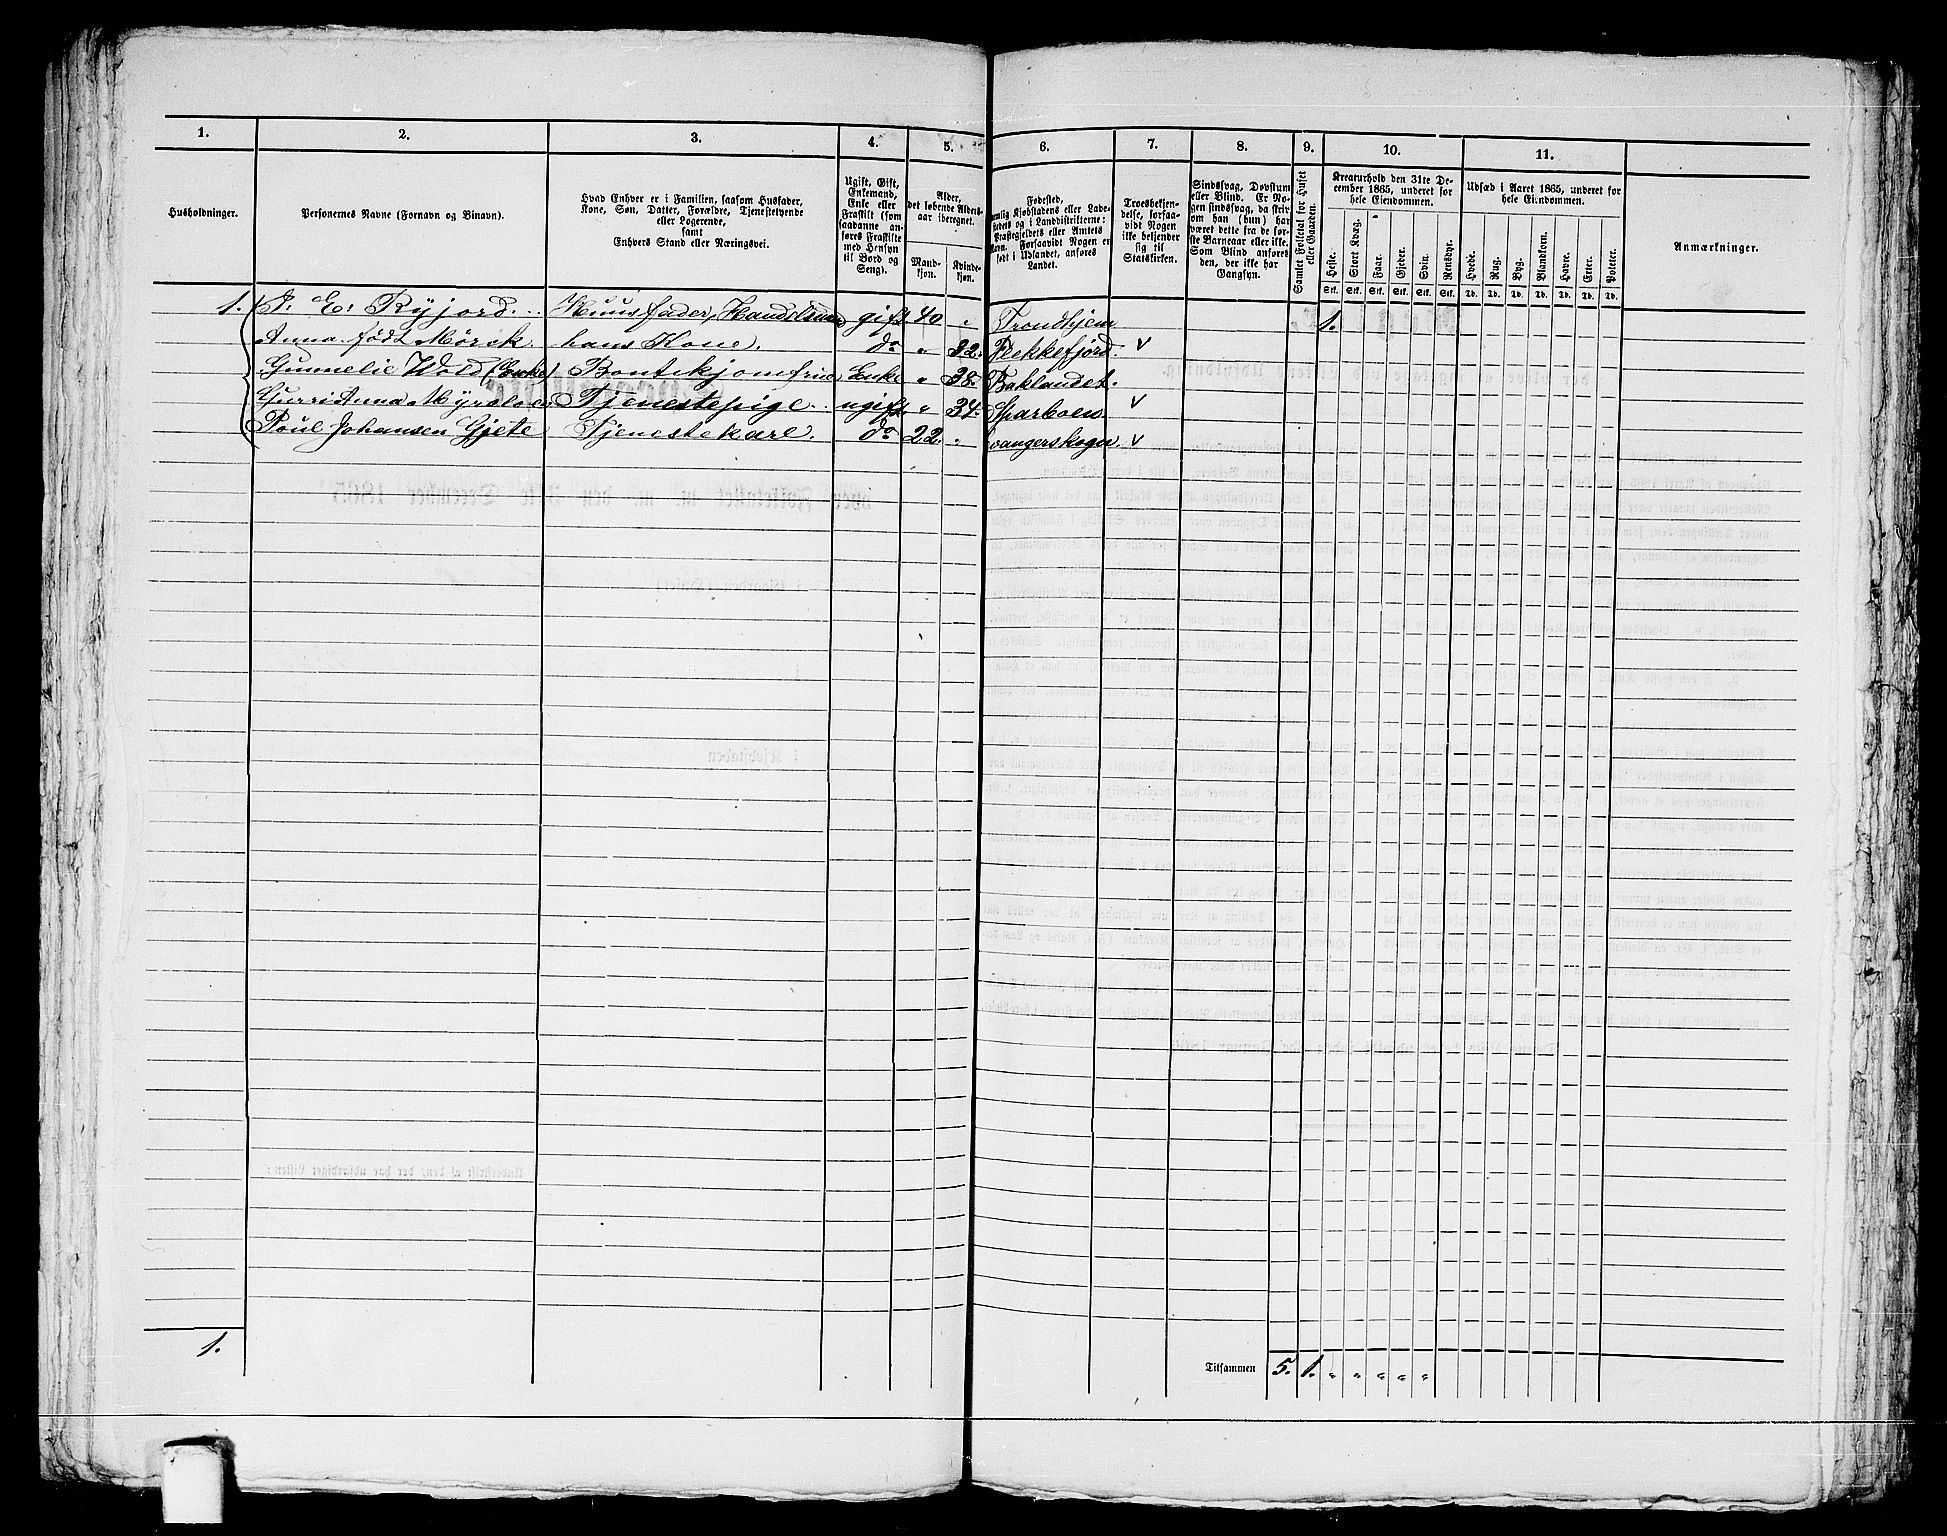 1. 2. 3. 4. 5. 6. 7. 8. 9. 10. 11.
Husholdninger.
Personernes Navne (Fornavn og Binavn).
Hvad Enhver er i Familien, saasom Husfader,
Kone, Søn, Datter, Forældre, Tjenestetyende
eller Logerende,
samt
Enhvers Stand eller Næringsvei.
Ugift, Gift,
Enkemand,
Enke eller
Fraskilt (som
saadanne an-
føres Fraskilte
med Hensyn
til Bord og
Seng).
Alder,
det løbende Alders-
aar iberegnet.
Mand-
kjøn.
Kvinde-
kjøn.
Fødested,
nemlig Kjøbstadens eller Lade-
stedets og i Landdistrikterne:
Præstegjeldets eller Amtets
Navn. Forsaavidt Nogen er
født i Udlandet, anføres
Landet.
Troesbekjen-
delse, forsaa-
vidt Nogen
ikke bekjender
sig til
Statskirken.
Sindssvag, Døvstum
eller Blind. Er No-
gen sindssvag, da skriv
om han (hun) har
været dette fra de før-
ste Barneaar eller ikke.
Som Blind anføres
den, der ikke har
Gangsyn.
Samlet Folketal for Huset
eller Gaarden.
Kreaturhold den 31te De-
cember 1865, underet for
hele Eiendommen.
Heste. Stort Kvæg. Faar. Gjeder. Svin. Rensdyr.
Stk. Stk. Stk. Stk. Stk. Stk.
Udsæd i Aaret 1865, underet for
hele Eiendommen.
Hvede. Rug. Byg. Blandkorn. Havre. Erter. Poteter.
Td. Td. Td. Td. Td. Td. Td.
Anmærkninger.
1. J: E: Ryjord. Huusfader, Handelsmand gift. 40 " Trondhjem 1.
Anna født Mørsk. hans Kone. do " 32. Flekkefjord. v
Gunnelie Wold (Enke) Enke " 38. Baklandet.
Gurri Anna Tjenestepige. ugift. " 34. Sparboen v
Poul Johansen Gjete Tjenestekarl. do 22. " v
1. Tilsammen 5. 1. " " " " "